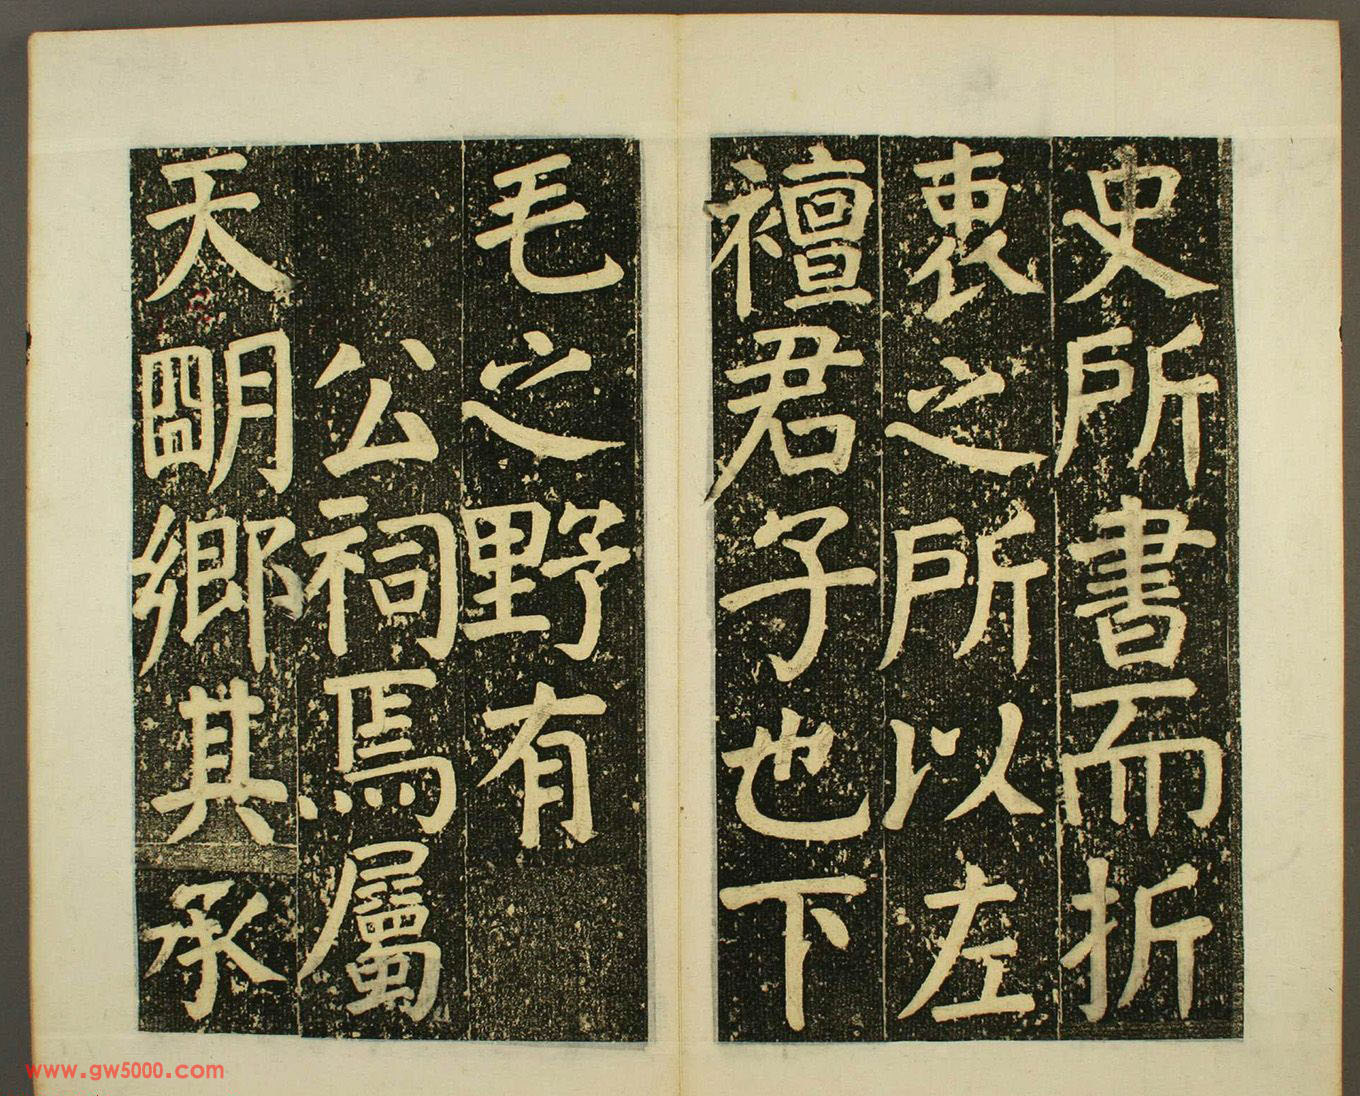 史所書而折
衷之所以左
襢君子也下
毛之野有
公祠焉屬
天朙鄉其承
www.gw5000.com